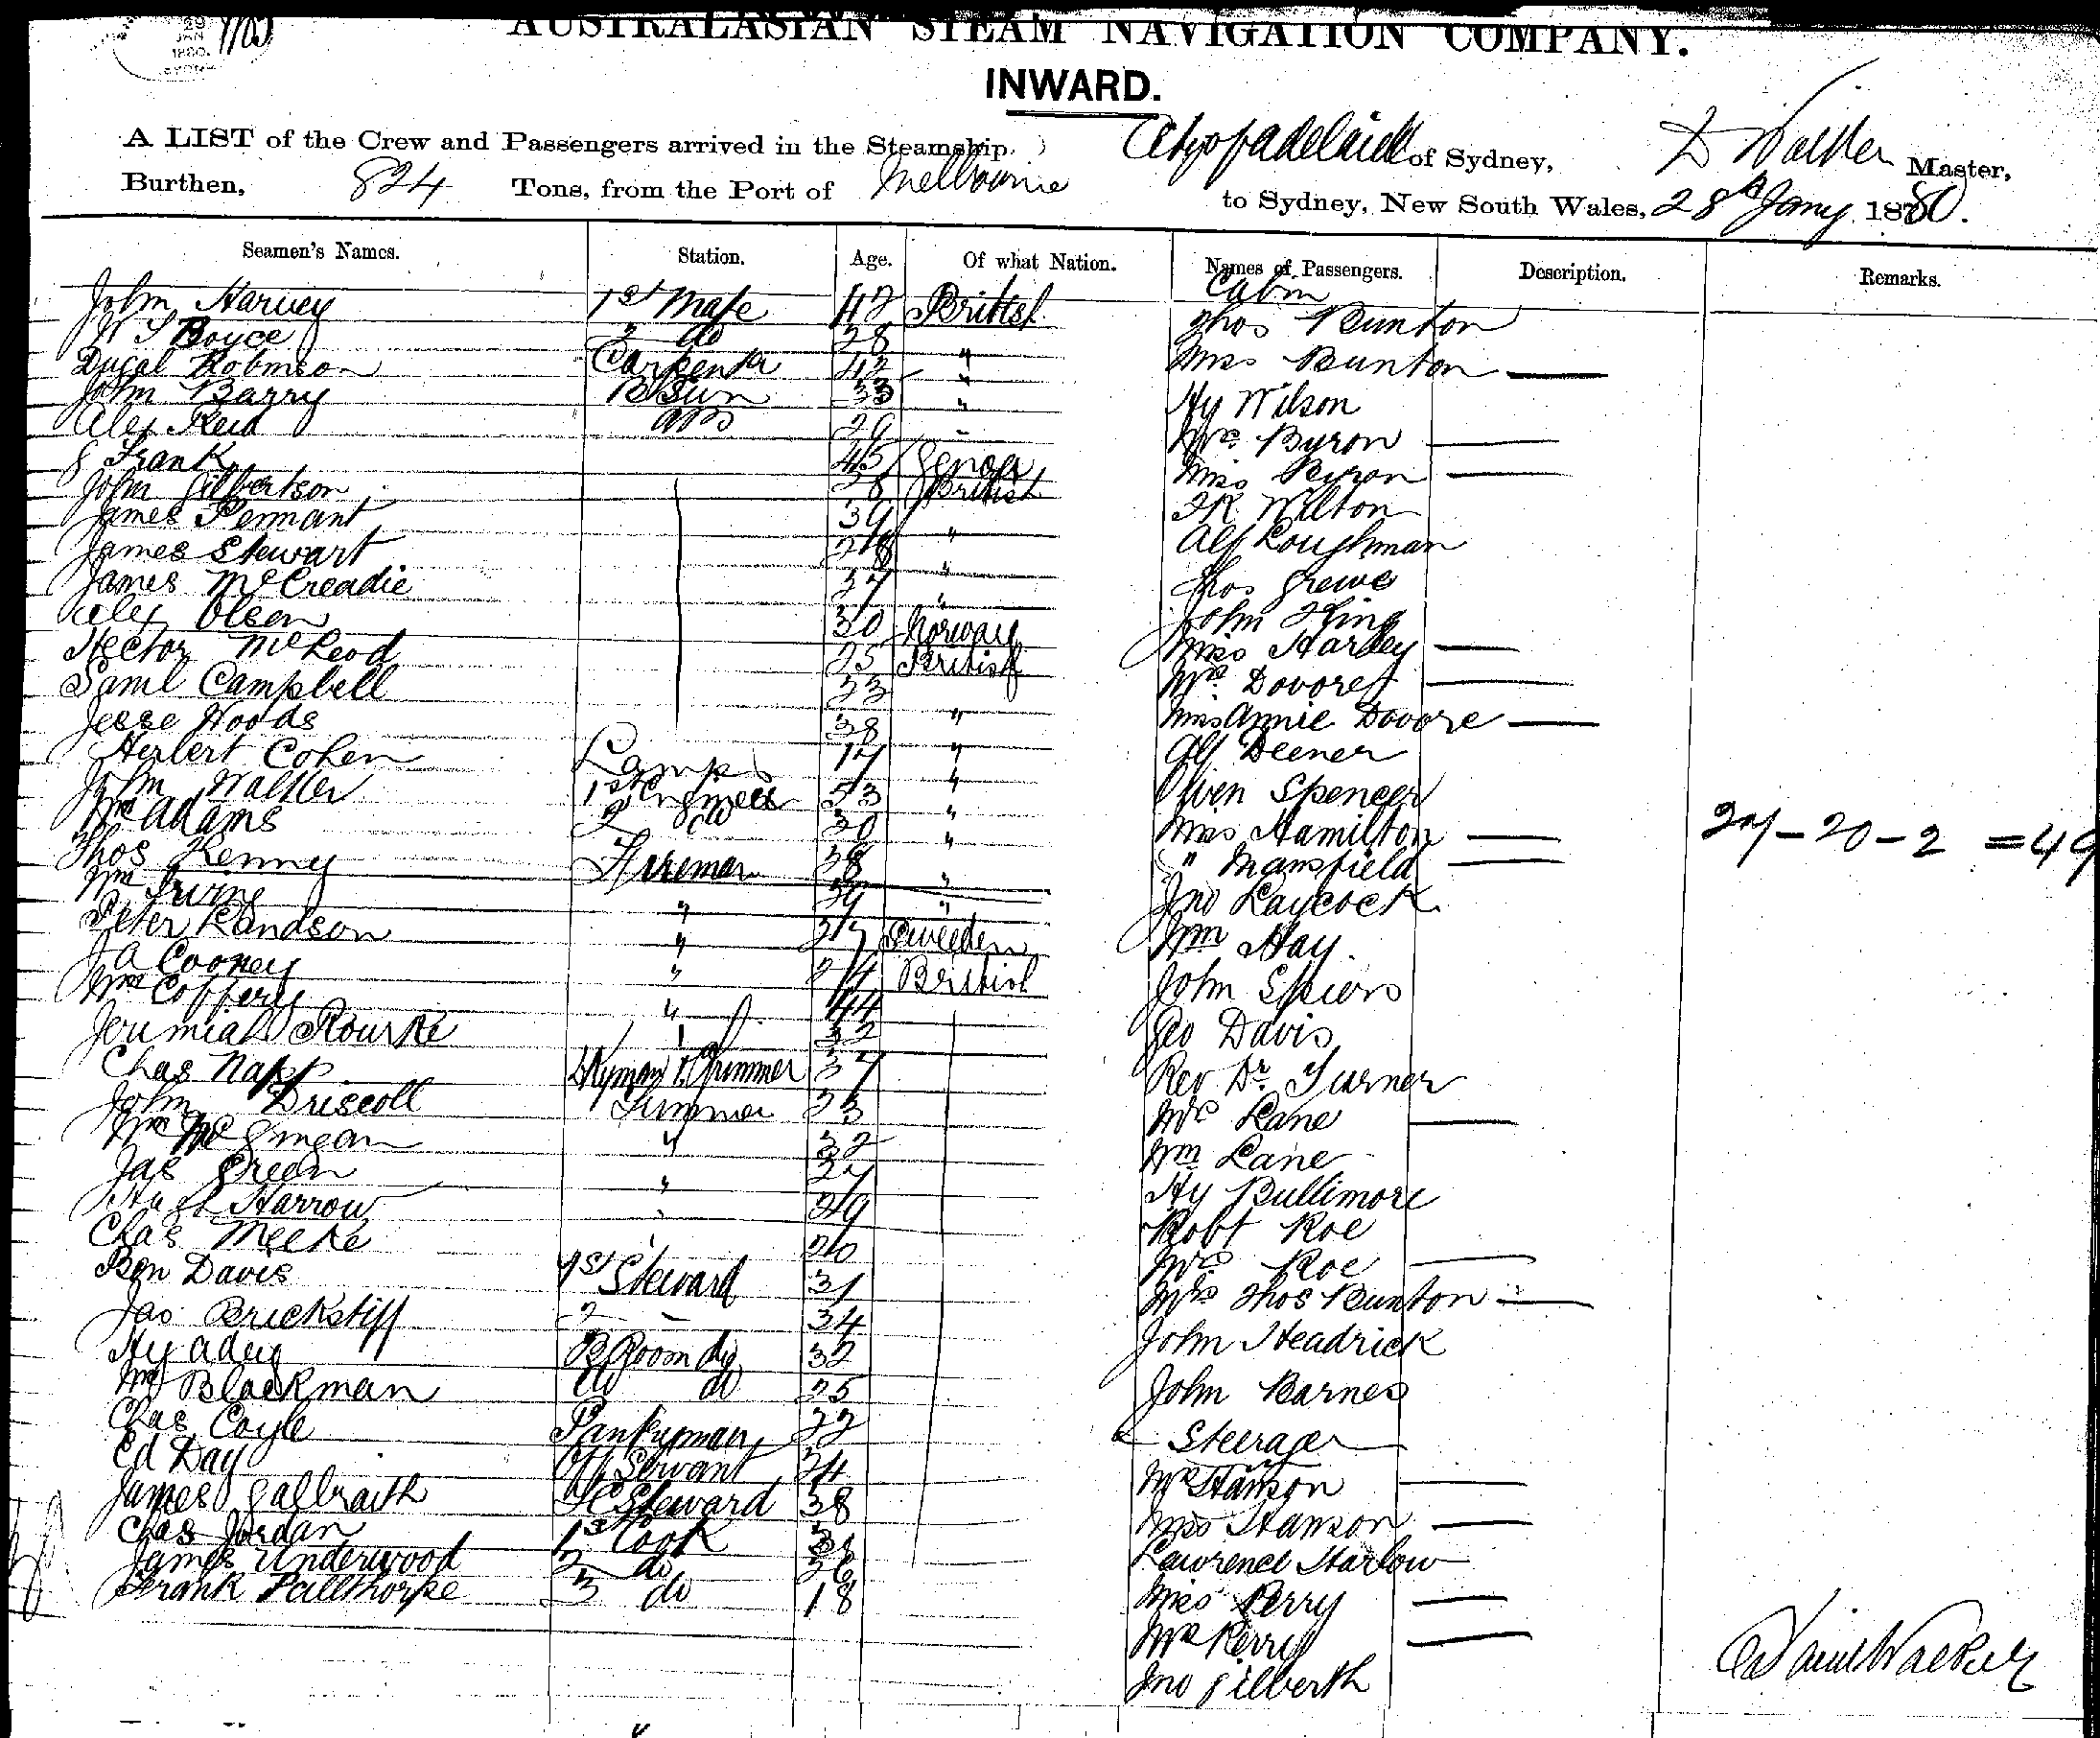 29 JAN 1880
AUSTRALASIAN STEAM NAVIGATION COMPANY.
INWARD.
A LIST of the Crew and Passengers arrived in the Steamship City of Adelaide of Sydney, D Walker Master,
Burthen, 824 Tons, from the Port of Melbourne to Sydney, New South Wales, 28th Jany 1880.
Seamen's Names. Station. Age. Of what Nation. Names of Passengers. Description. Remarks.
Cabin
John Harvey 1st Mate 42 British Thos Bunton
W S Boyce 2 do 28 Miss Bunton
Dugal Robinson Carpenter 42 " Hy Wilson
John Barry BSun 33 " Mrs Byron
Alex Reid AB 29 " Miss Byron
J Frank 45 Genoa F R Wilton
John Gilbertson 28 British Alf Loughman
James Pennant 39 " Thos Greive
James Stewart 28 " John King
James McCreadie 37 " Miss Harley
Alex Olsen 30 Norway Mrs Dovore
Hector McLeod 25 British Miss Annie Dovore
Saml Campbell 23 Alf Deener
Jesse Woods 38 " Owen Spencer
Herbert Cohen Lamps 17 " Miss Hamilton
John Walker 1st Engineer 53 " " Mansfield
Wm Adams 2 do 30 " Jno Laycock
Thos Kenny Fireman 38 " Wm Hay
Wm Irvine " 39 " John Spiers
Peter Randson " 37 Sweeden Geo Davis
J A Cooney " 24 British Rev Dr Turner
Wm Coffery " 44 Mrs Lane
Jerimiah Rourke 32 Wm Lane
Chas Napp Dkyman & Trimmer 37 Hy Bullimore
John Driscoll Trimmer 23 Robt Roe
Wm McGingan " 32 Mrs Roe
Jas Green " 27 Mrs Thos Bunton
Harrow " 29 John Headrick
Chas Meeke 20 John Barnes
Ben Davis 1st Steward 31 Steerage
Jas Brickstiff 2 34 Mrs Hanson
Hy Adey B Room do 32 Miss Hanson
Wm Blackman do do 25 Lawrence Harlow
Chas Coyle Pantryman 22 Miss Perry
Ed Day Off Servant 24 Mrs Perry
James Galbraith F C Steward 38 Jno Gilberth
Chas Jordan 1st Cook
James Underwood 2 do 26
Frank Pallthorpe 3 do 18
27 - 20 - 2 = 49
Danl Walker